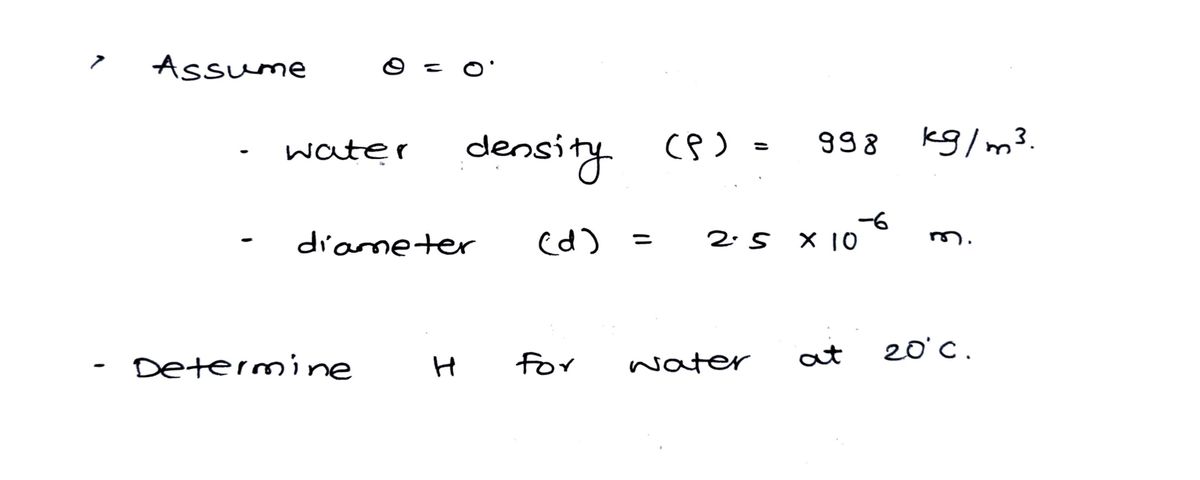 › Assume θ = 0°
- water density (ρ) = 998 kg/m³.
- diameter (d) = 2.5 × 10⁻⁶ m.
- Determine H for water at 20°C.